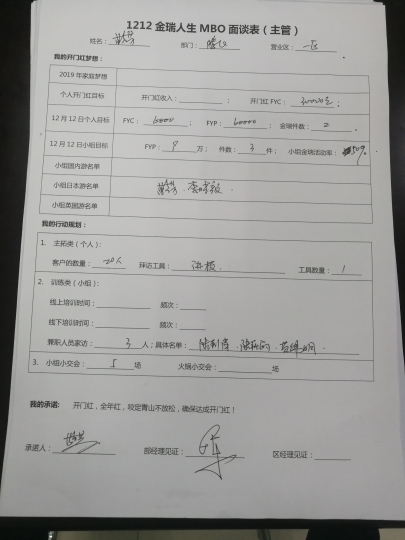 1212 金瑞人生 MBO 面谈表（主管）
姓名： 部门： 营业区：一区
我的开门红梦想：
2019 年家庭梦想
个人开门红目标 开门红收入： ； 开门红 FYC： ；
12 月 12 日个人目标 FYC： 6000 FYP： 60000 金瑞件数： 2
12 月 12 日小组目标 FYP： 9 万； 件数： 3 件； 小组金瑞活动率： 50%
小组国内游名单
小组日本游名单
小组英国游名单
我的行动规划：
1. 主拓类（个人）：
客户的数量： 20人 拜访工具： 工具数量： 1
2. 训练类（小组）：
线上培训时间： 频次：
线下培训时间： 频次：
兼职人员家访： 3 人；具体名单：
3. 小组小交会： 5 场 火锅小交会： 场
我的承诺： 开门红，全年红，咬定青山不放松，确保达成开门红！
承诺人： 部经理见证： 区经理见证：